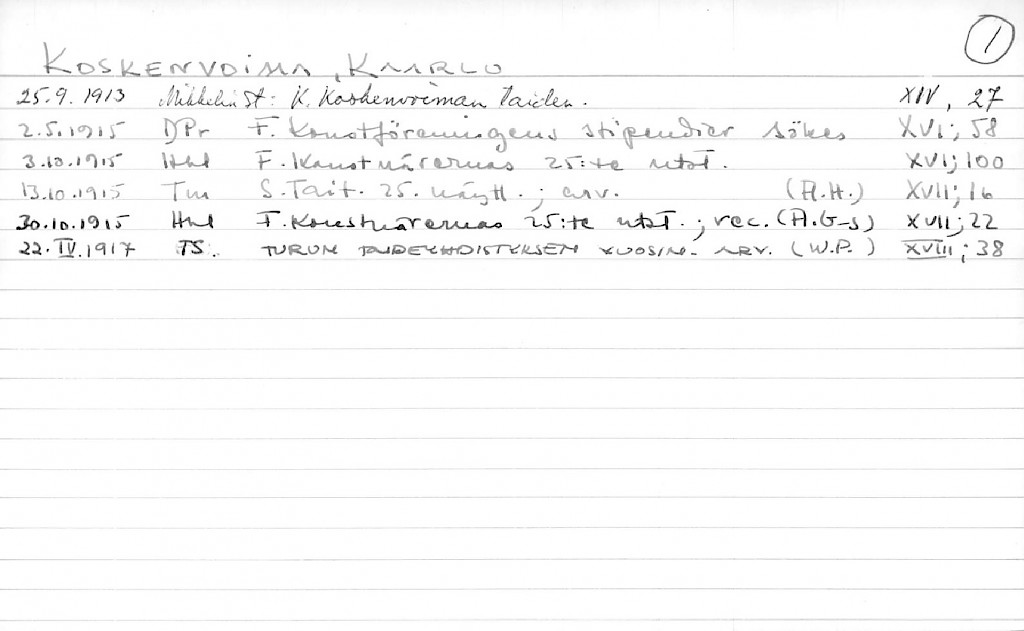 1
KOSKENVOIMA, KAARLO
25.9.1913 Mikkelin St: K. Koskenvoiman taiden. XIV, 27
2.5.1915 DPr F. Konstföreningens stipendier sökes XVI; 58
3.10.1915 Hbl F. Konstnärernas 25:te utst. XVI; 100
13.10.1915 Tm S. Tait. 25. näytt.; arv. (A.H.) XVII; 16
30.10.1915 Hbl F. Konstnärernas 25:te utst.; rec. (A.G-s) XVII; 22
22.IV.1917 TS. TURUN TAIDEYHDISTYKSEN VUOSIN. ARV. (W.P.) XVIII; 38